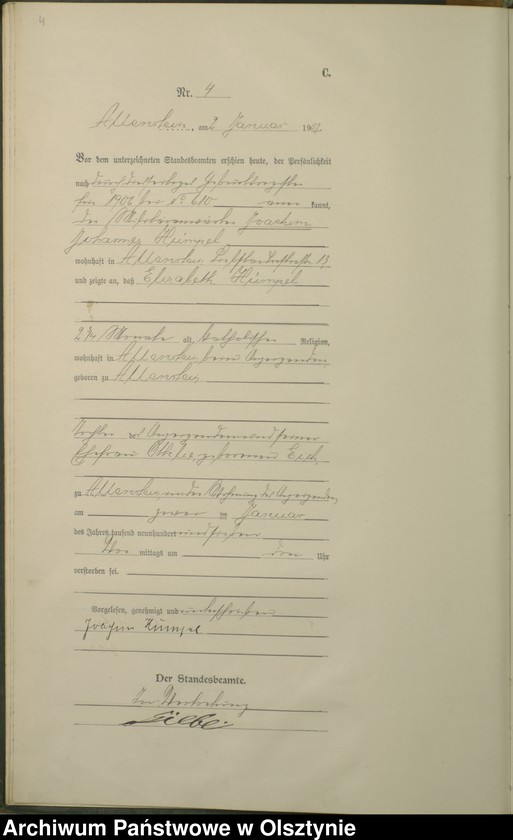 4
C.
Nr. 4
Allenstein, am 2 Januar 190
Vor dem unterzeichneten Standesbeamten erschien heute, der Persönlichkeit
nach durch
für 1906 No 610 kannt,
der Joachim
Johannes Hümpel
wohnhaft in Allenstein, 13
und zeigte an, daß Elisabeth Hümpel
2 3/4 Monate alt, katholischer Religion,
wohnhaft in Allenstein beim Anzeigenden
geboren zu Allenstein
Tochter des Anzeigenden und seiner
Ehefrau geborenen
zu Allenstein in der Wohnung des Anzeigenden,
am zwei ten Januar
des Jahres tausend neunhundert und sieben
Vor mittags um drei Uhr
verstorben sei.
Vorgelesen, genehmigt und unterschrieben
Joachim Hümpel
Der Standesbeamte.
In Vertretung
Archiwum Państwowe w Olsztynie